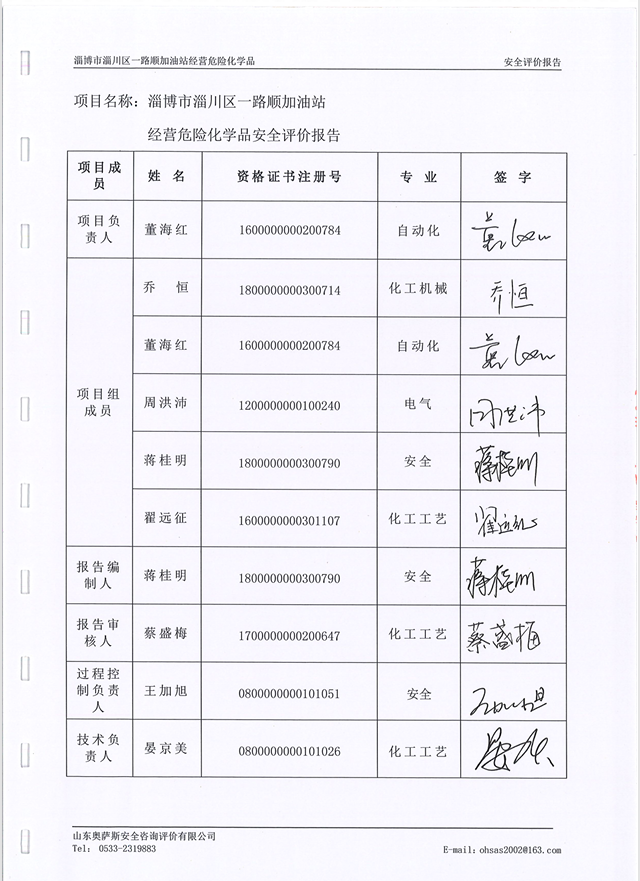 淄博市淄川区一路顺加油站经营危险化学品 安全评价报告
项目名称：淄博市淄川区一路顺加油站
经营危险化学品安全评价报告
项目成员 姓 名 资格证书注册号 专 业 签 字
项目负责人 董海红 1600000000200784 自动化
项目组成员 乔 恒 1800000000300714 化工机械 乔恒
董海红 1600000000200784 自动化
周洪沛 1200000000100240 电气 周洪沛
蒋桂明 1800000000300790 安全 蒋桂明
翟远征 1600000000301107 化工工艺 翟远征
报告编制人 蒋桂明 1800000000300790 安全 蒋桂明
报告审核人 蔡盛梅 1700000000200647 化工工艺 蔡盛梅
过程控制负责人 王加旭 0800000000101051 安全
技术负责人 晏京美 0800000000101026 化工工艺
山东奥萨斯安全咨询评价有限公司
Tel: 0533-2319883 E-mail：ohsas2002@163.com